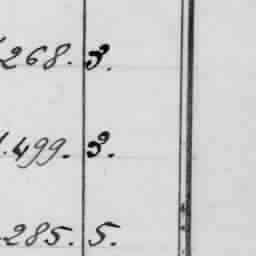 268. 3.
.499. 3.
285. 5.